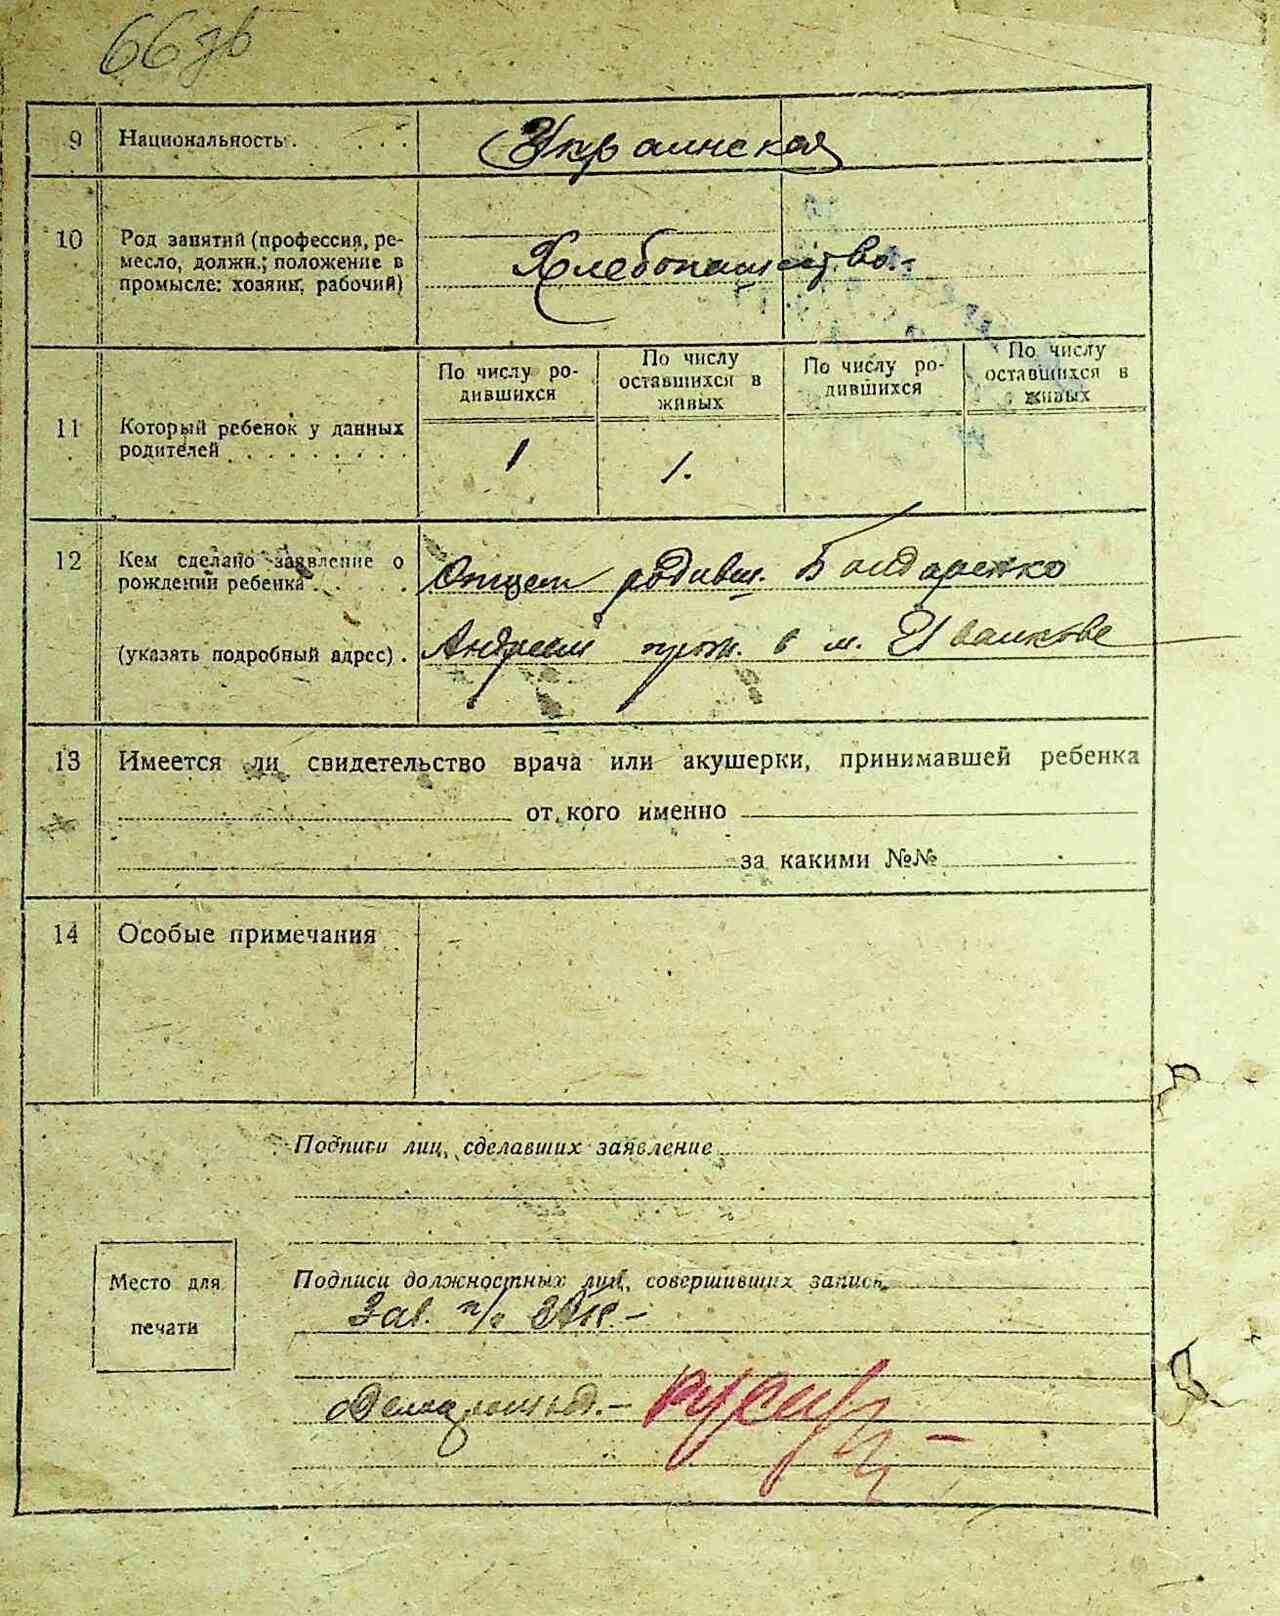 66 зв
9 Национальность . . . . Украинская
10 Род занятий (профессия, ре-
месло, должн.; положение в
промысле: хозяин, рабочий)
Хлебопашество.-
11 Который ребенок у данных
родителей . . . . . . . . .
По числу ро-
дившихся
По числу
оставшихся в
живых
По числу ро-
дившихся
По числу
оставшихся в
живых
1 1.
12 Кем сделано заявление о
рождении ребенка . . . .
(указать подробный адрес) .
Отцем родивш. Бондаренко
Андреем прож. в м. Иванкове
13 Имеется ли свидетельство врача или акушерки, принимавшей ребенка
от кого именно
за какими №№
14 Особые примечания
-
Подписи лиц, сделавших заявление
Место для
печати
Подписи должностных лиц, совершивших запись
Зав. п/о ЗАГС.-
Делопроизвод.-